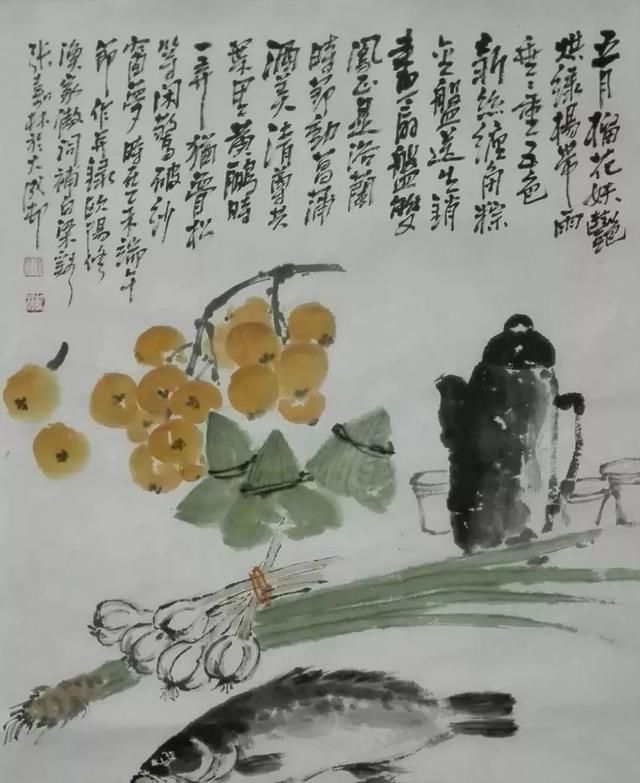 五月榴花妖艷
烘綠楊帶雨
垂〻重五色
新絲纏角粽
金盤送生綃
畫扇盤雙
鳳正是浴蘭
時節動菖蒲
酒美清尊共
葉里黄鸝時
一弄猶瞢松
等闲驚破沙
窗夢 時乙未端午
節作并錄歐陽修
漁家傲詞補白梁谿
張嘉林於大成邨